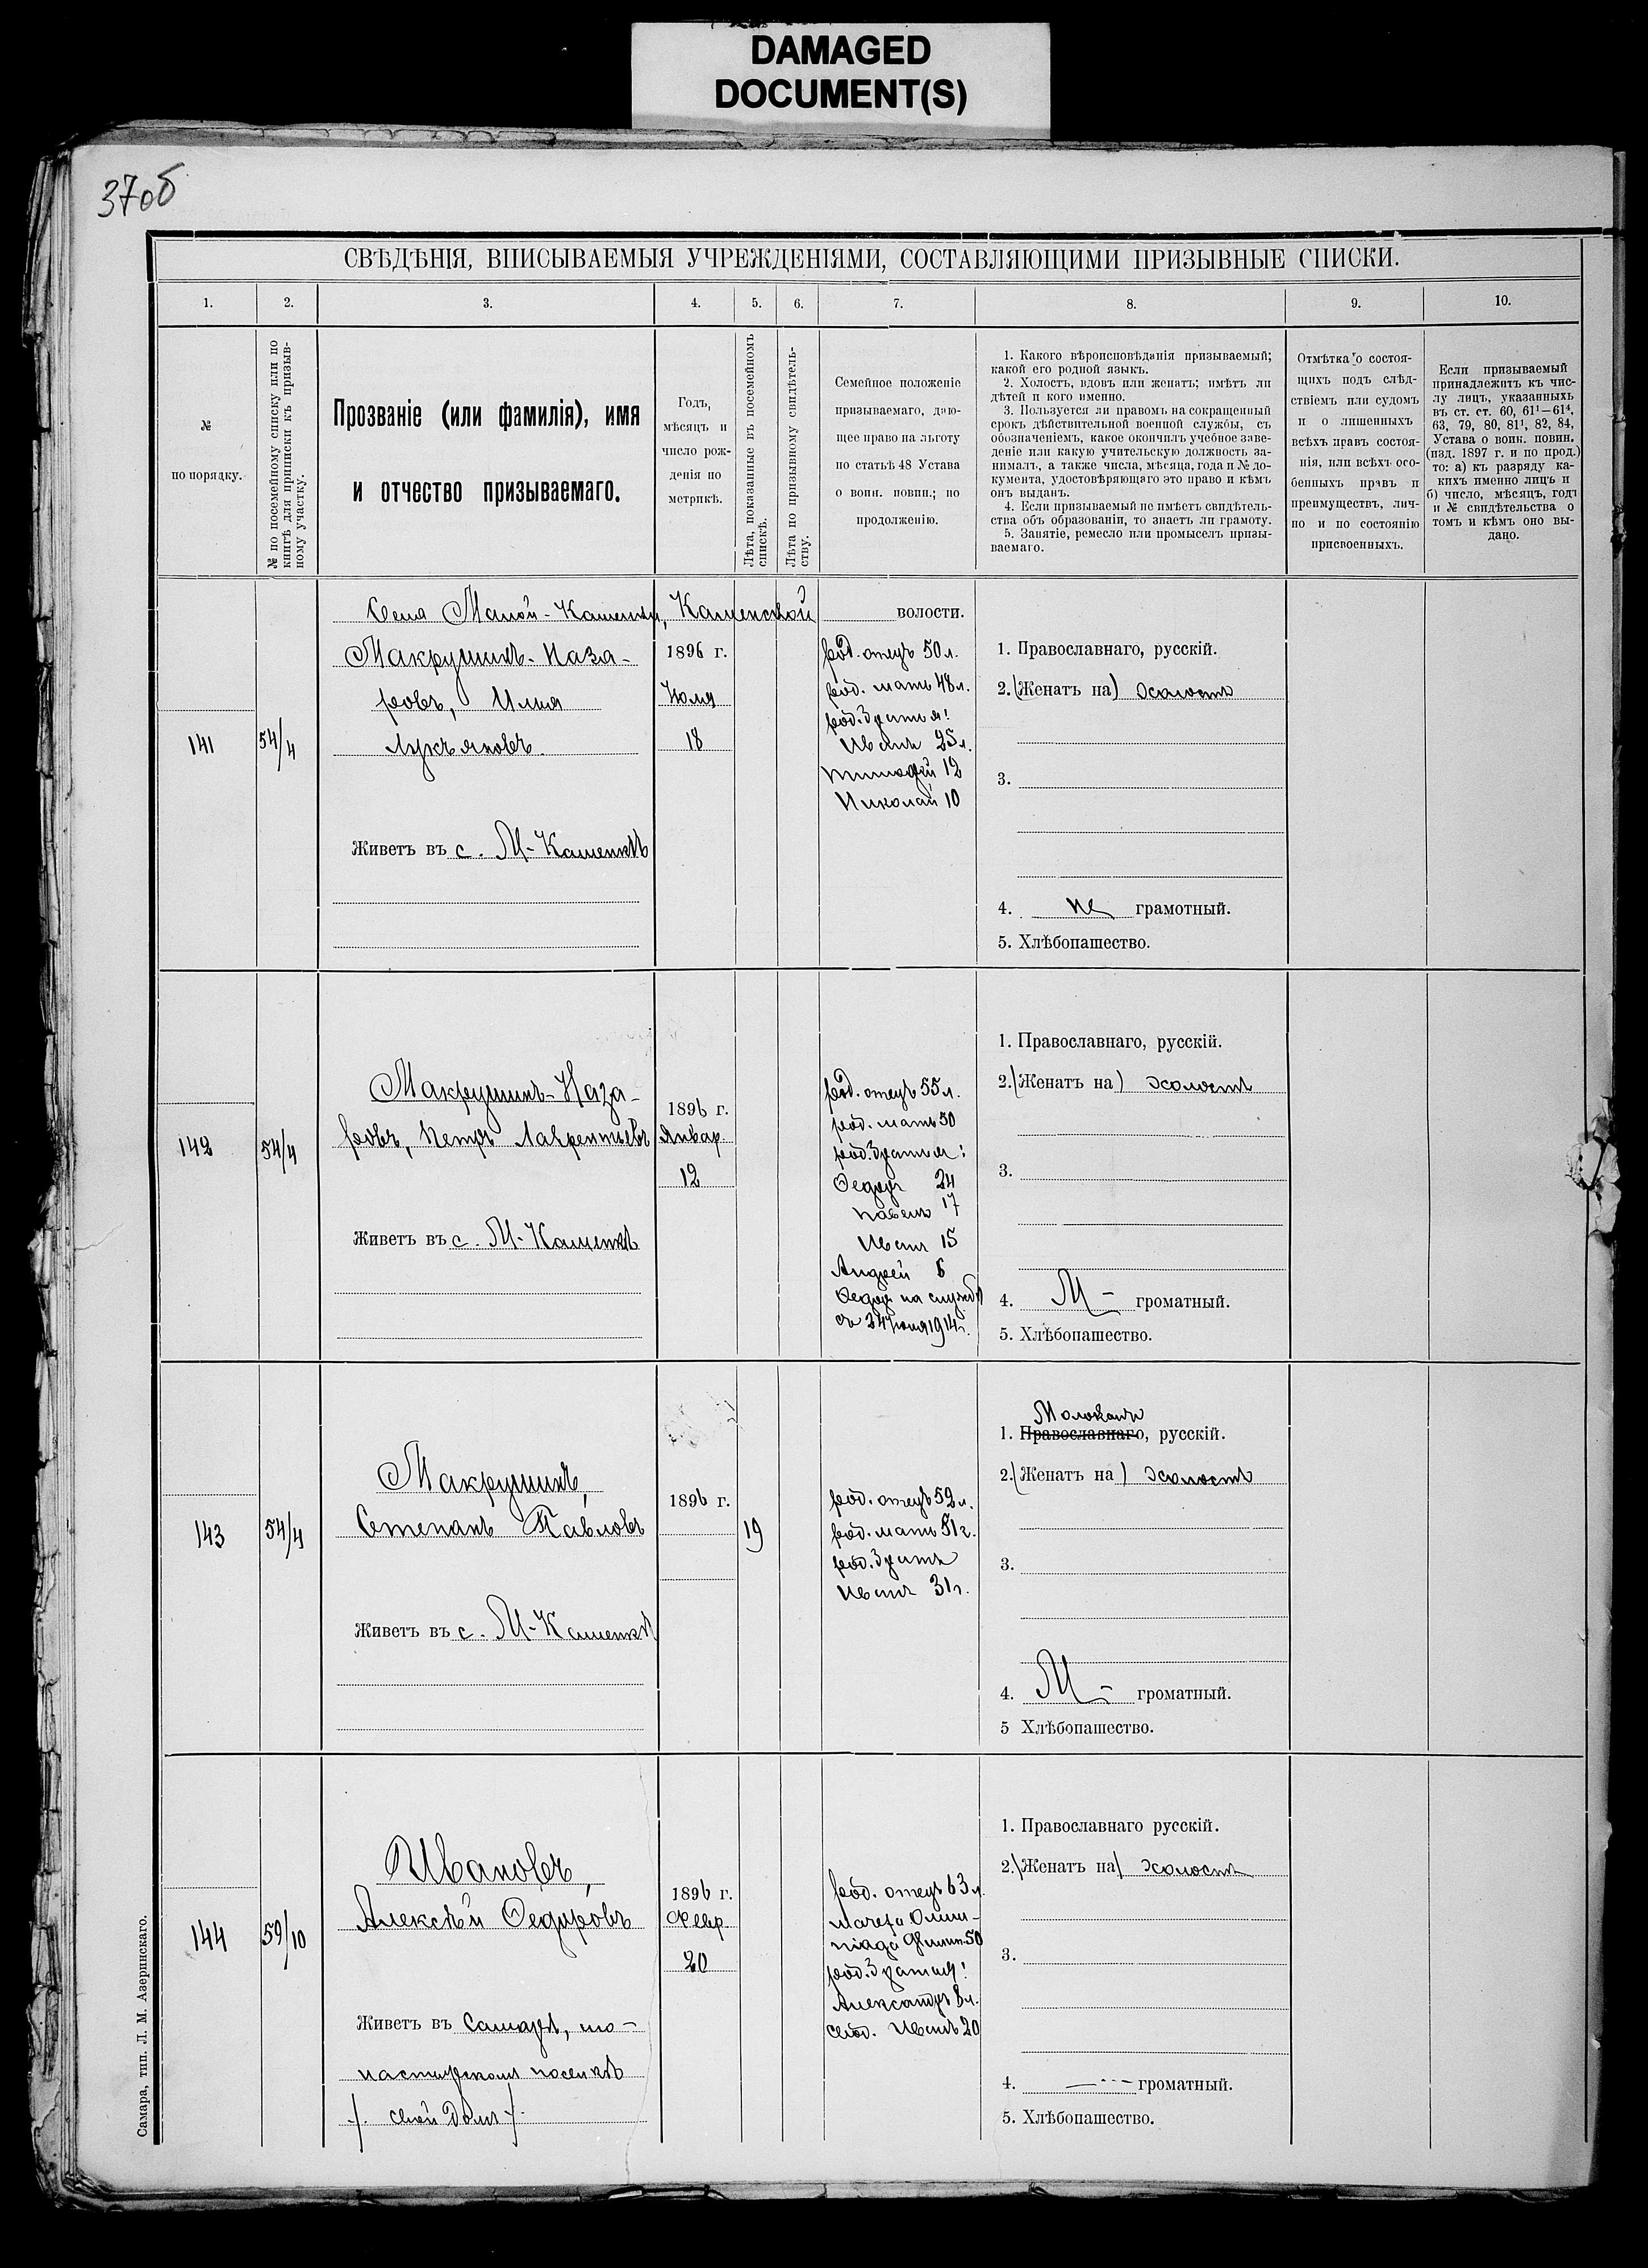 DAMAGED
DOCUMENT(S)
37об
СВѢДѢНІЯ, ВПИСЫВАЕМЫЯ УЧРЕЖДЕНІЯМИ, СОСТАВЛЯЮЩИМИ ПРИЗЫВНЫЕ СПИСКИ.
1. 2. 3. 4. 5. 6. 7. 8. 9. 10.
№
по порядку.
№ по посемейному списку или по
книгѣ для приписки къ призыв-
ному участку.
Прозваніе (или фамилія), имя
и отчество призываемаго.
Годъ,
мѣсяцъ и
число рож-
денія по
метрикѣ.
Лѣта, показанные въ посемейномъ
спискѣ.
Лѣта по призывному свидѣтель-
ству.
Семейное положеніе
призываемаго, даю-
щее право на льготу
по статьѣ 48 Устава
о воин. повин.; по
продолженію.
1. Какого вѣроисповѣданія призываемый;
какой его родной языкъ.
2. Холостъ, вдовъ или женатъ; имѣтъ ли
дѣтей и кого именно.
3. Пользуется ли правомъ на сокращенный
срокъ дѣйствительной военной службы, съ
обозначеніемъ, какое окончилъ учебное заве-
деніе или какую учительскую должность за-
нималъ, а также числа, мѣсяца, года и № до-
кумента, удостовѣряющаго это право и кѣмъ
онъ выданъ.
4. Если призываемый не имѣетъ свидѣтель-
ства объ образованіи, то знаетъ ли грамоту.
5. Занятіе, ремесло или промыселъ призы-
ваемаго.
Отмѣтка о состоя-
щихъ подъ слѣд-
ствіемъ или судомъ
и о лишенныхъ
всѣхъ правъ состоя-
нія, или всѣхъ осо-
бенныхъ правъ и
преимуществъ, лич-
но и по состоянію
присвоенныхъ.
Если призываемый
принадлежитъ къ чис-
лу лицъ, указанныхъ
въ ст. ст. 60, 61¹—61⁴,
63, 79, 80, 81¹, 82, 84,
Устава о воин. повин.
(изд. 1897 г. и по прод.)
то: а) къ разряду ка-
кихъ именно лицъ и
б) число, мѣсяцъ, годъ
и № свидѣтельства о
томъ и кѣмъ оно вы-
дано.
Села Малой-Каменки, Каменской волости.
141
54/4
Макрушинъ-Наза-
ровъ, Илья
Лукьяновъ.
Живетъ въ с. М-Каменкѣ
1896 г.
Іюля
18
род. отецъ 50 л.
род. мать 48 л.
род. братья:
Иванъ 25 л.
Тимофей 12
Николай 10
1. Православнаго, русскій.
2. (Женатъ на) холостъ
3.
4. не грамотный.
5. Хлѣбопашество.
142
54/4
Макрушинъ-Наза-
ровъ, Петръ Лаврентьевъ
Живетъ въ с. М-Каменкѣ
1896 г.
Январ.
12
род. отецъ 55 л.
род. мать 50
род. братья:
Федоръ 24
Павелъ 17
Иванъ 15
Андрей 6
Федоръ на службѣ
съ 24 іюля 1914 г.
1. Православнаго, русскій.
2. (Женатъ на) холостъ
3.
4. М- громатный.
5. Хлѣбопашество.
143
54/4
Макрушинъ,
Степанъ Павловъ
Живетъ въ с. М-Каменкѣ
1896 г.
19
род. отецъ 59 л.
род. мать 51 г.
род. братъ
Иванъ 31 г.
Молоканъ
1. Православнаго, русскій.
2. (Женатъ на) холостъ
3.
4. М- громатный.
5 Хлѣбопашество.
144
59/10
Ивановъ,
Алексѣй Федоровъ
Живетъ въ Самарѣ, мо-
настырскомъ поселкѣ
/. свой домъ /.
1896 г.
Февр.
20
род. отецъ 63 л.
мачеха Олим-
піада 50
род. братья:
Александръ 8 л.
свод. Иванъ 20
1. Православнаго русскій.
2. (Женатъ на) холостъ
3.
4. громатный.
5. Хлѣбопашество.
Самара, тип. Л. М. Азеринскаго.